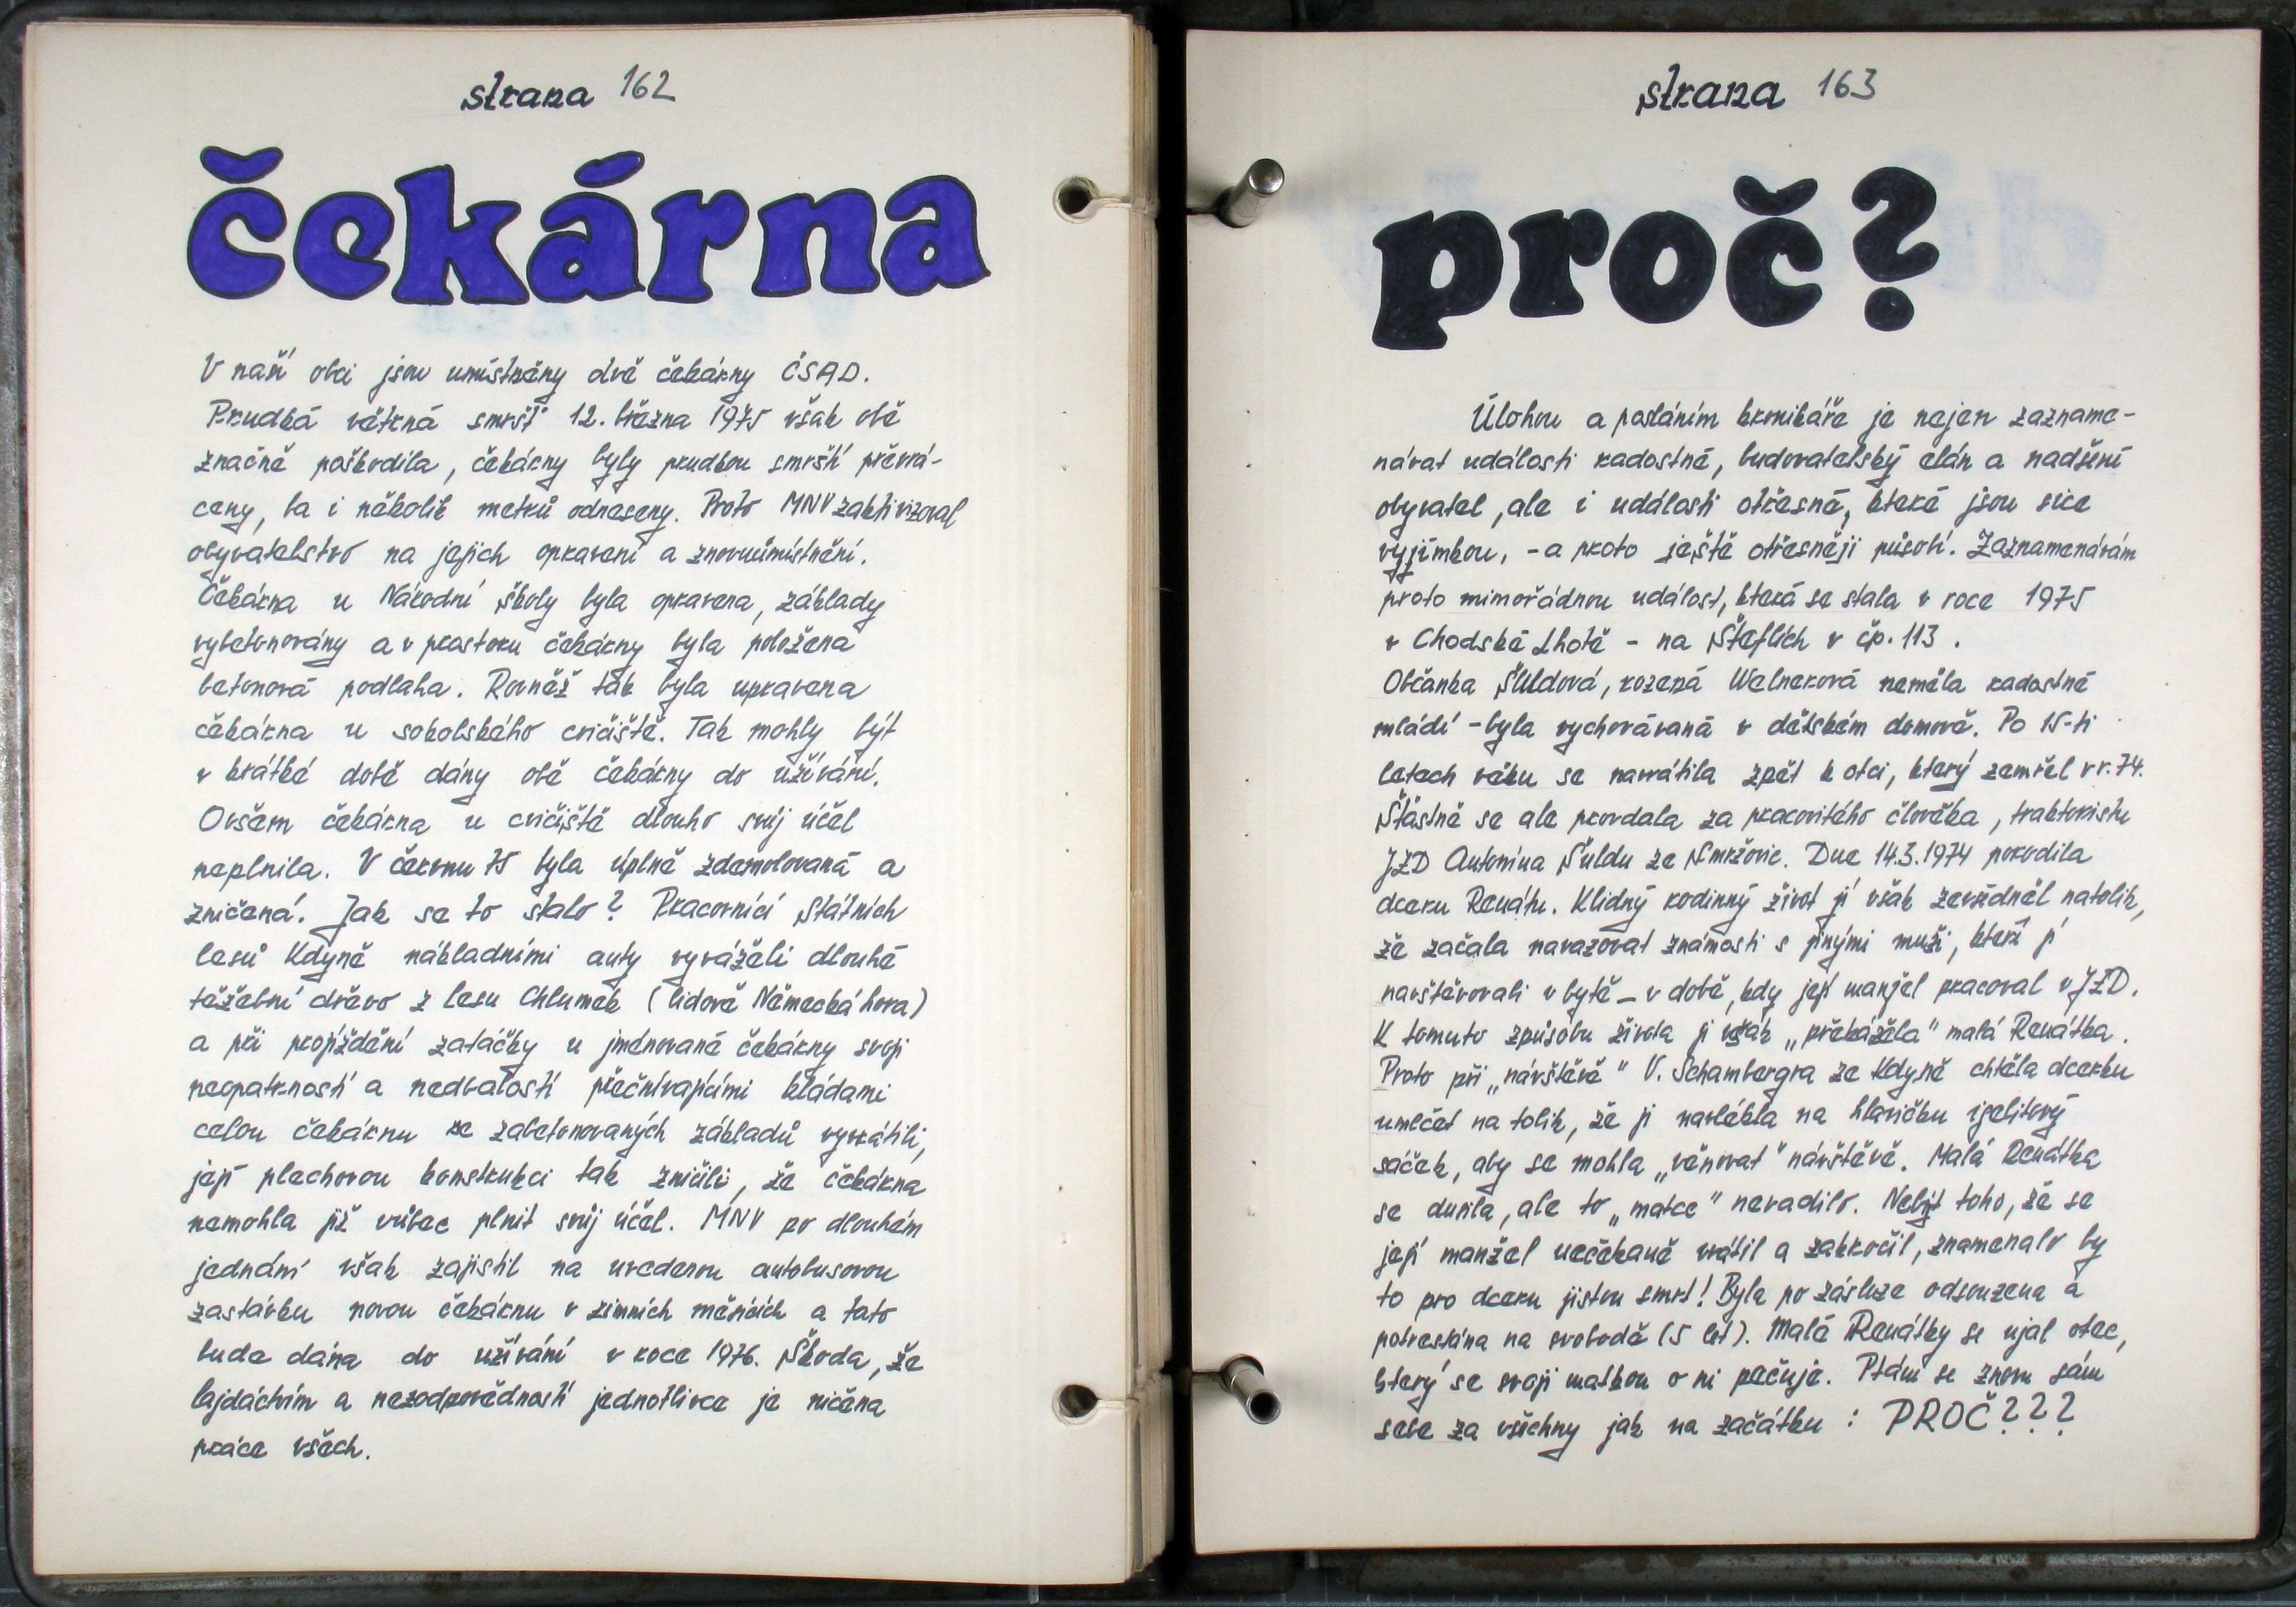 strana 162
čekárna
V naší obci jsou umístněny dvě čekárny ČSAD.
Prudká větrná smršť 12. března 1975 však obě
značně poškodila, čekárny byly prudkou smrští převrá-
ceny, ba i několik metrů odneseny. Proto MNV zaktivizoval
obyvatelstvo na jejich opravení a znovuumístnění.
Čekárna u Národní školy byla opravena, základy
vybetonovány a v prostoru čekárny byla položena
betonová podlaha. Rovněž tak byla upravena
čekárna u sokolského cvičiště. Tak mohly být
v krátké době dány obě čekárny do užívání.
Ovšem čekárna u cvičiště dlouho svůj účel
neplnila. V červnu 75 byla úplně zdemolovaná a
zničená. Jak se to stalo? Pracovníci Státních
lesů Kdyně nákladními auty vyváželi dlouhé
těžební dřevo z lesu Chlumek (lidově Německá hora)
a při projíždění zatáčky u jmenované čekárny svojí
neopatrností a nedbalostí přečnívajícími kládami
celou čekárnu ze zabetonovaných základů vyvrátili,
její plechovou konstrukci tak zničili, že čekárna
nemohla již vůbec plnit svůj účel. MNV po dlouhém
jednání však zajistil na uvedenou autobusovou
zastávku novou čekárnu v zimních měsících a tato
bude dána do užívání v roce 1976. Škoda, že
lajdáctvím a nezodpovědností jednotlivce je ničena
práce všech.
strana 163
proč?
Úlohou a posláním kronikáře je nejen zazname-
návat události radostné, budovatelský elán a nadšení
obyvatel, ale i události otřesné, které jsou sice
vyjímkou, - a proto ještě otřesněji působí. Zaznamenávám
proto mimořádnou událost, která se stala v roce 1975
v Chodské Lhotě - na Šteflích v čp. 113.
Občanka Šuldová, rozená Welnerová neměla radostné
mládí - byla vychovávaná v dětském domově. Po 15-ti
letech věku se navrátila zpět k otci, který zemřel v r. 74.
Šťastně se ale provdala za pracovitého člověka, traktoristu
JZD Antonína Šuldu ze Smržovic. Dne 14.3.1974 porodila
dceru Renátu. Klidný rodinný život jí však zevšedněl natolik,
že začala navazovat známosti s jinými muži, kteří jí
navštěvovali v bytě - v době, kdy její manžel pracoval v JZD.
K tomuto způsobu života jí však „překážela" malá Renátka.
Proto při „návštěvě" V. Schambergra ze Kdyně chtěla dcerku
umlčet na tolik, že jí navlékla na hlavičku igelitový
sáček, aby se mohla „věnovat" návštěvě. Malá Renátka
se dusila, ale to „matce" nevadilo. Nebýt toho, že se
její manžel nečekaně vrátil a zakročil, znamenalo by
to pro dceru jistou smrt! Byla po zásluze odsouzena a
potrestána na svobodě (5 let). Malé Renátky se ujal otec,
který se svojí matkou o ni pečuje. Ptám se znovu sám
sebe za všechny jak na začátku : PROČ???